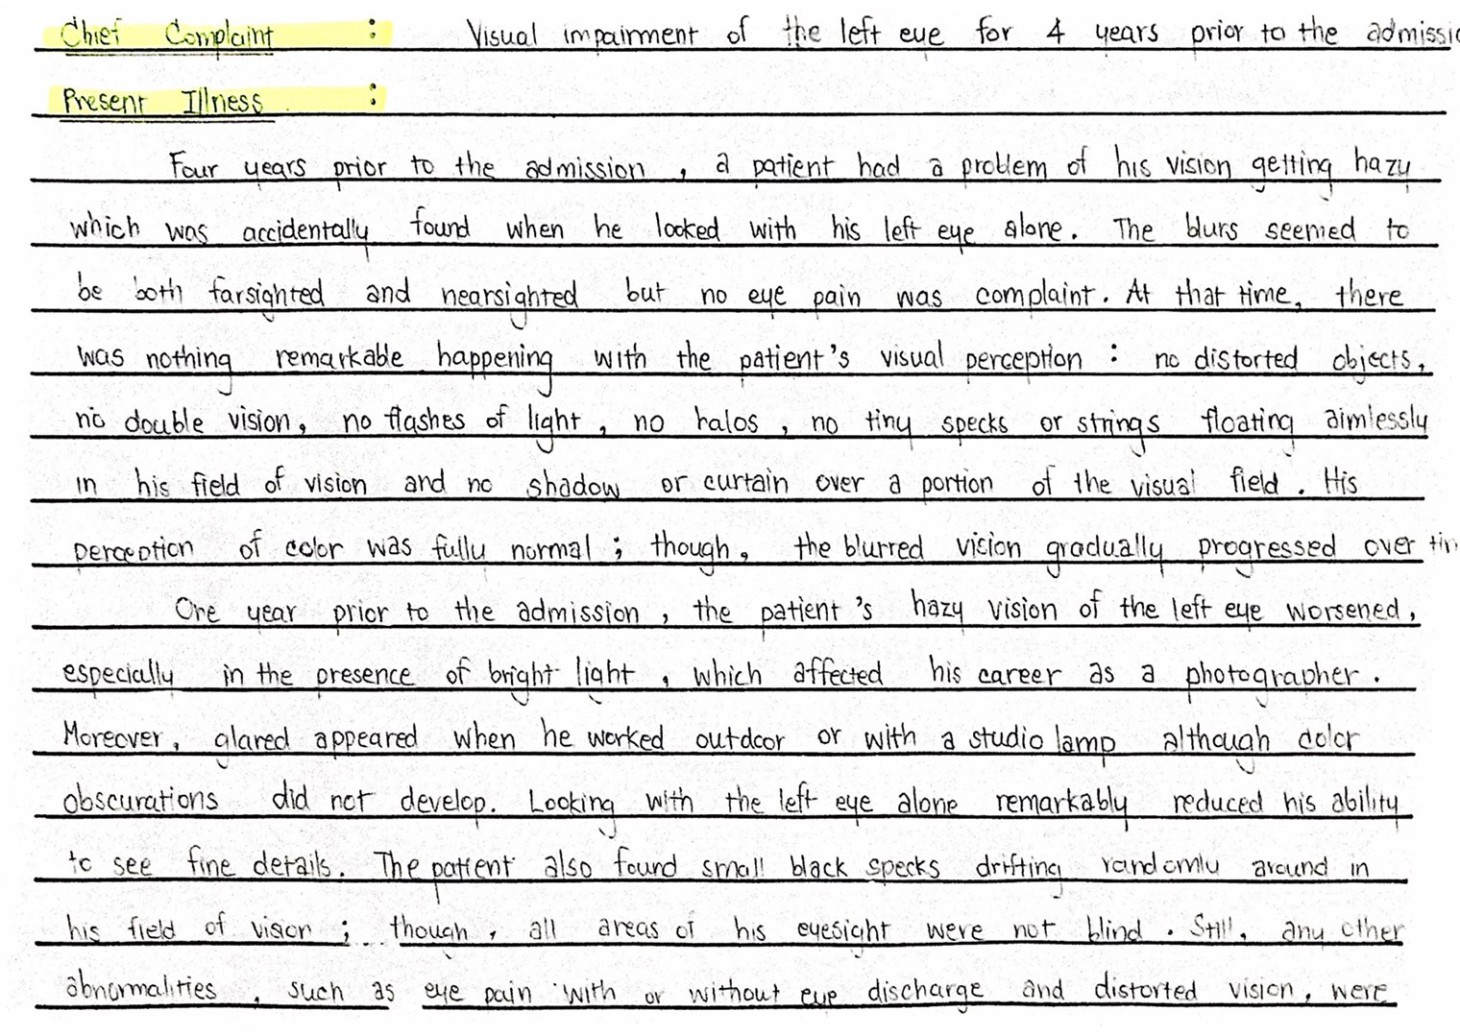 Chief Complaint : Visual impairment of the left eye for 4 years prior to the admissio
Present Illness :
Four years prior to the admission , a patient had a problem of his vision getting hazy
which was accidentally found when he looked with his left eye alone. The blurs seemed to
be both farsighted and nearsighted but no eye pain was complaint. At that time, there
was nothing remarkable happening with the patient's visual perception : no distorted objects,
no double vision, no flashes of light , no halos , no tiny specks or strings floating aimlessly
in his field of vision and no shadow or curtain over a portion of the visual field . His
perception of color was fully normal ; though, the blurred vision gradually progressed over
One year prior to the admission , the patient's hazy vision of the left eye worsened ,
especially in the presence of bright light , which affected his career as a photographer .
Moreover, glared appeared when he worked outdoor or with a studio lamp although color
obscurations did not develop. Looking with the left eye alone remarkably reduced his ability
to see fine details. The patient also found small black specks drifting randomly around in
his field of vision ; though , all areas of his eyesight were not blind . Still, any other
abnormalities , such as eye pain with or without eye discharge and distorted vision , were